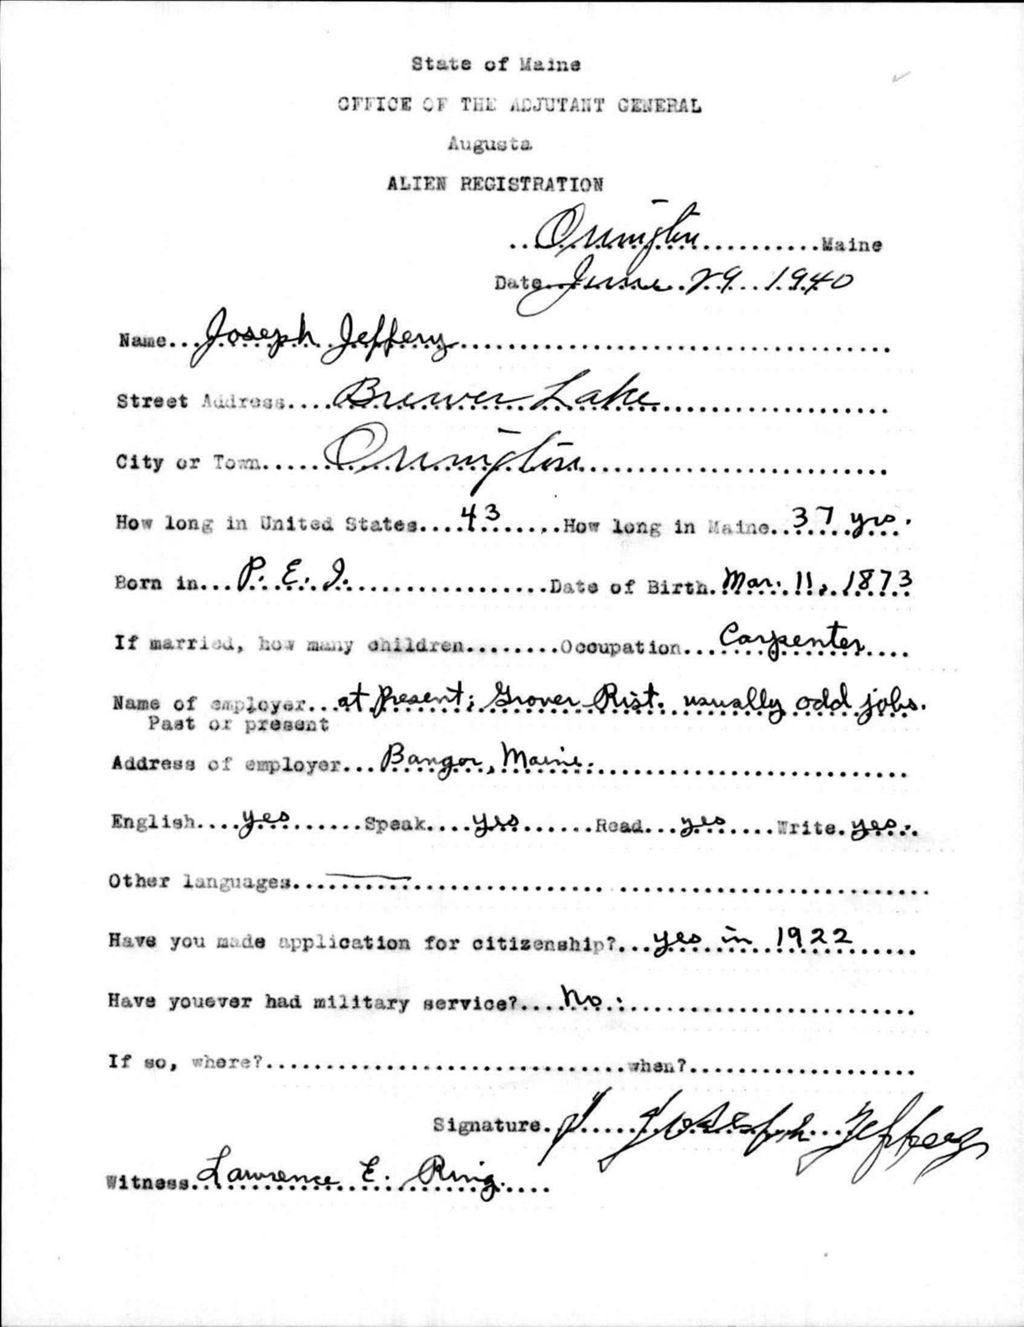 State of Maine
OFFICE OF THE ADJUTANT GENERAL
Augusta
ALIEN REGISTRATION
..Orrington..........Maine
Date June 29 1940
Name...Joseph Jeffery
Street Address....Brewer Lake
City or Town......Orrington
How long in United States....43......How long in Maine..37 yrs.
Born in...P. E. I...................Date of Birth.Mar. 11, 1873
If married, how many children.........Occupation...Carpenter....
Name of employer...at present; Grover Rist. usually odd jobs.
Past or present
Address of employer...Bangor, Maine.
English....yes.......Speak....yes.......Read...yes.....Write.yes.
Other languages...———
Have you made application for citizenship?...yes in 1922
Have youever had military service?....No.
If so, where?..............................when?....................
Signature. J Joseph Jeffery
Witness..Lawrence E. Ring.